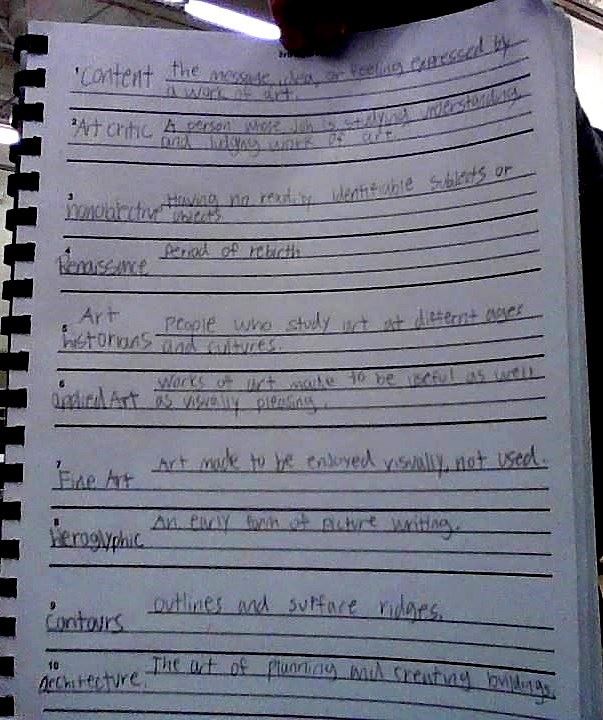 1 Content the message, idea, or feeling expressed by
a work of art.
2 Art critic A person whose job is studying, understanding,
and judging work of art.
3 nonobjective Having no readily identifiable subjects or
objects
4 Renaissance period of rebirth
5 Art historians people who study art at different ages
and cultures.
6 applied Art works of art made to be useful as well
as visually pleasing.
7 Fine Art Art made to be enjoyed visually, not used.
8 Heroglyphic An early form of picture writing.
9 Contours outlines and surface ridges.
10 architecture. The art of planning and creating buildings.